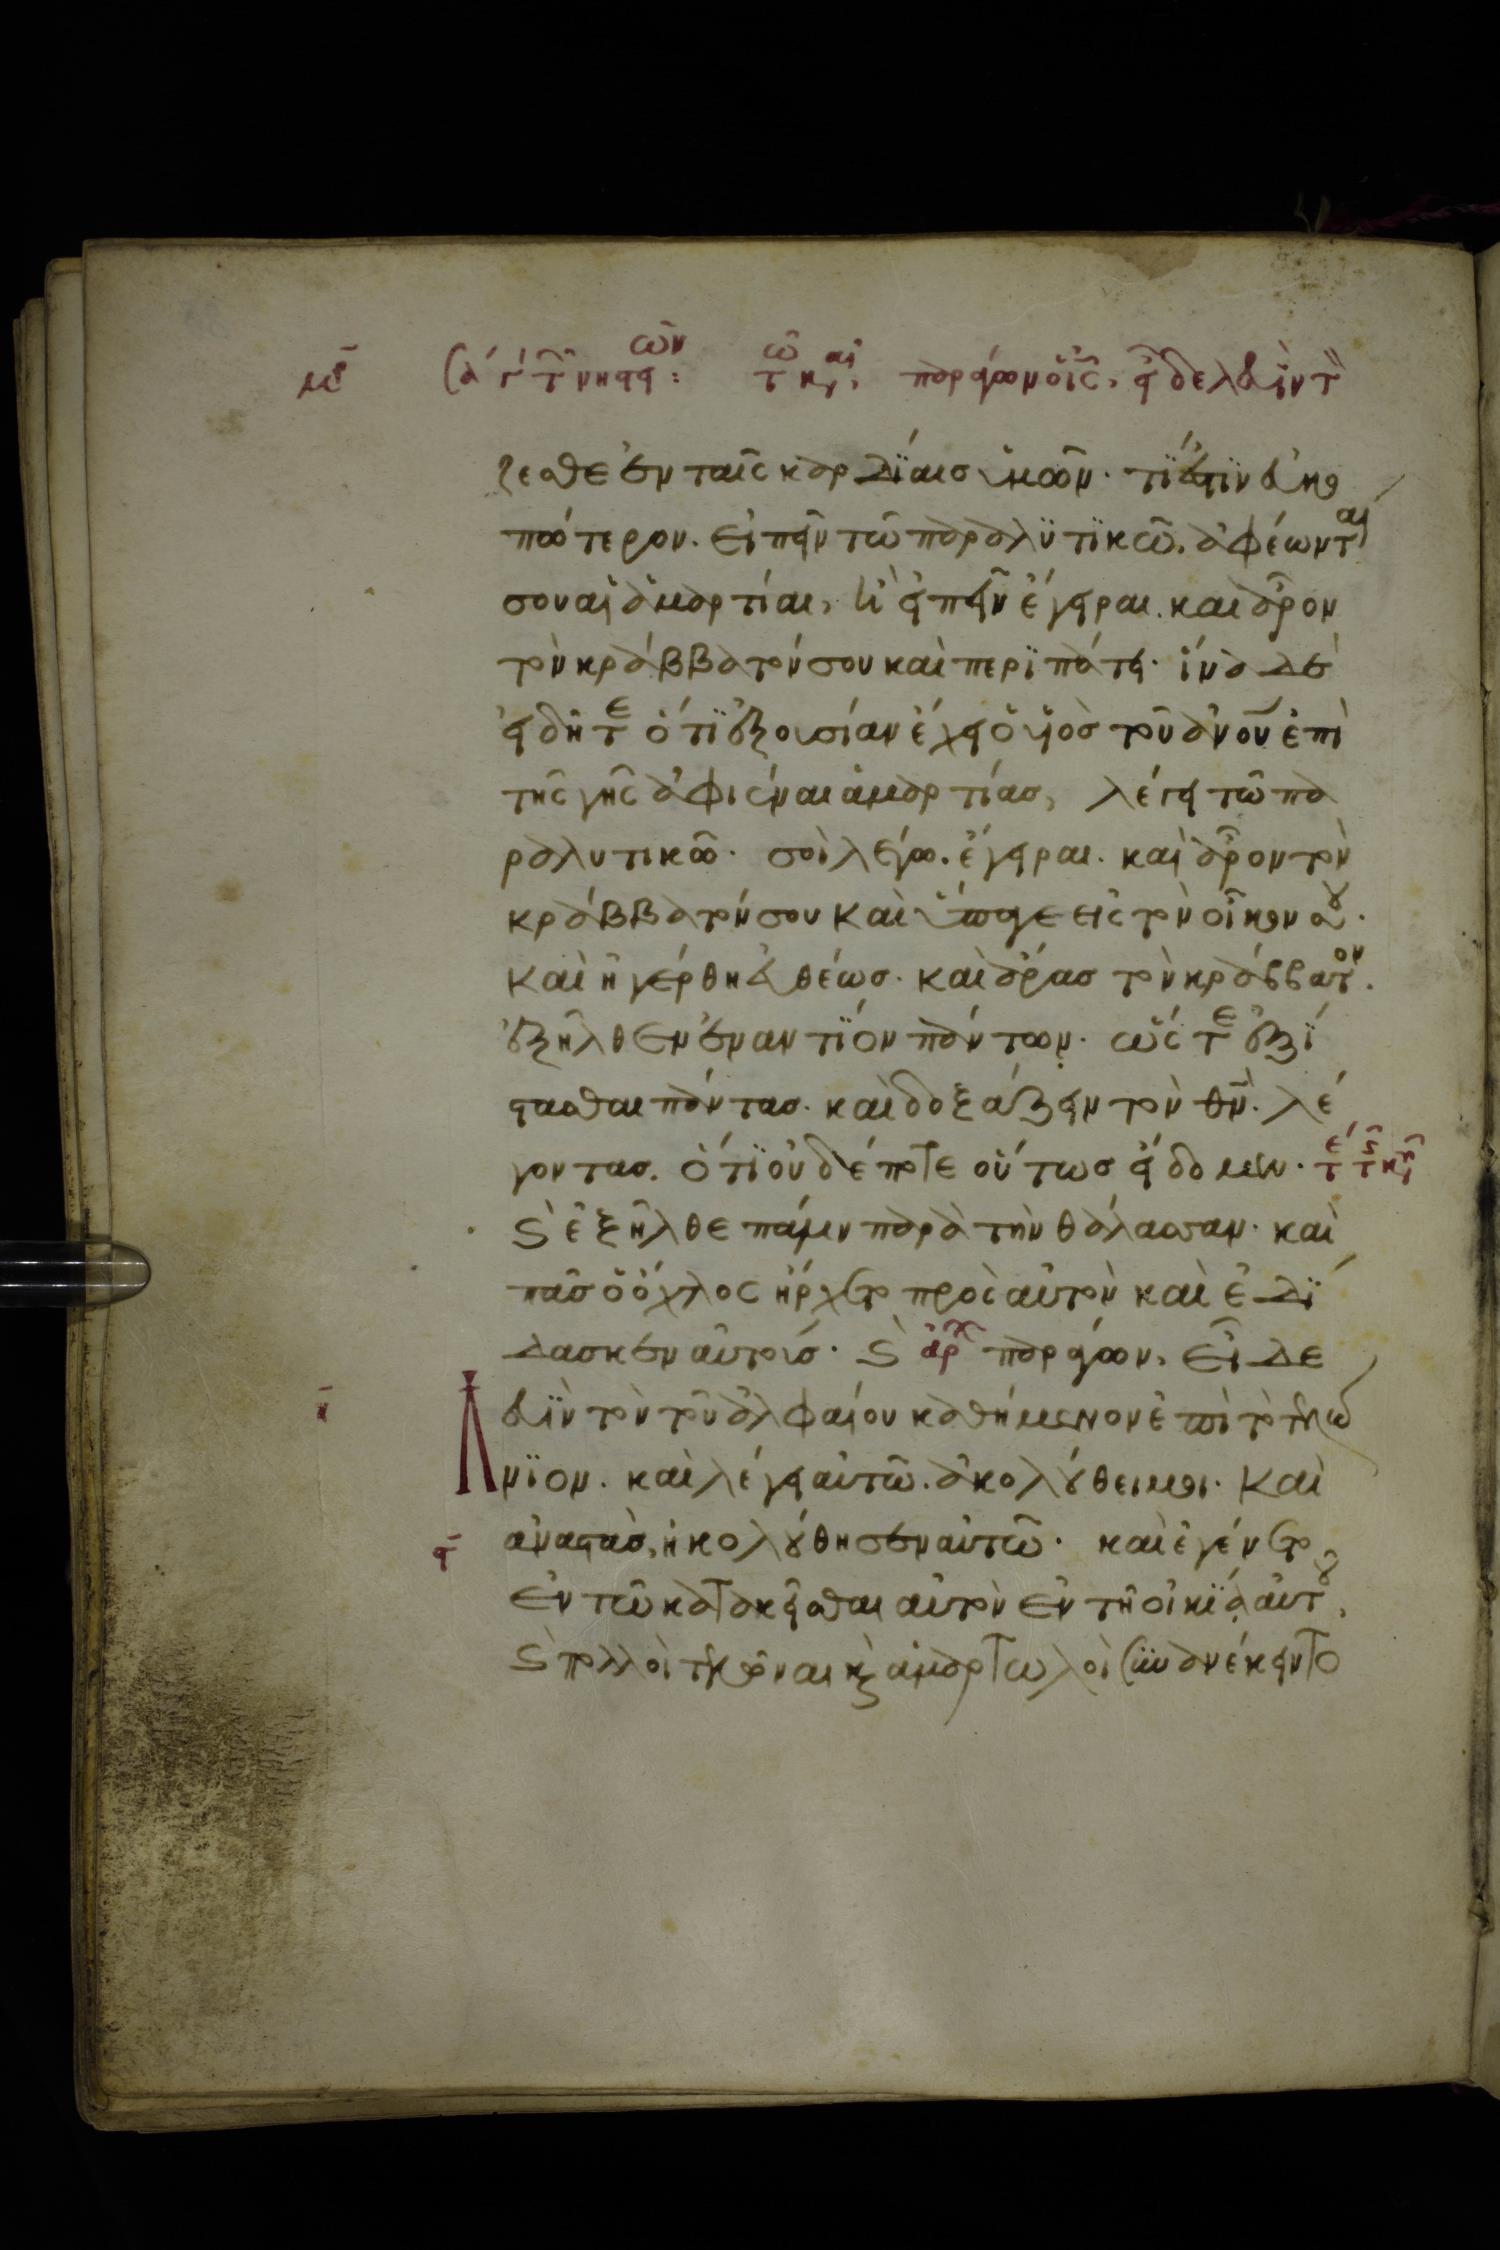 ζεσθε ἐν ταῖς καρδΐαισ ὑμῶν· τΐ ἐστϊν εὐκο
πώτερον. εἰπεῖν τῶ παραλϋτϊκῶ. ἀφέωνται
σου αἱ ἁμαρτίαι, ἢ εἰπεῖν ἔγειραι. καὶ ἆρον
τὸν κράββατόν σου καὶ περϊπάτει· ἵνα δὲ
εἰδῆτε ὅτϊ ἐξουσίαν ἔχει ὁ υἱὸσ τοῦ ἀνου ἐπὶ
τῆς γῆς ἀφιέναι ἁμαρτίασ, λέγει τῶ πα
ραλυτικῶ· σοὶ λέγω. ἔγειραι. καὶ ἆρον τὸν
κράββατόν σου καὶ ὕπαγε εἰς τὸν οἶκον σου.
καὶ ἠγέρθη εὐθέωσ. καὶ ἄρασ τὸν κράββατον.
ἐξῆλθεν ἐναντΐον πάντων. ὥστε ἐξΐ
στασθαι πάντασ. καὶ δοξάζειν τὸν θν. λέ
γοντασ. ὅτϊ οὐδέποτε οὕτωσ εἴδομεν.
καὶ ἐξῆλθε πάλιν παρὰ τὴν θάλασσαν. καὶ
πᾶσ ὁ ὄχλος ἤρχετο πρὸς αὐτὸν καὶ ἐδΐ
δασκεν αὐτούσ. καὶ ἀρχ παράγων, εἶδε
λευϊν τὸν τοῦ ἀλφαίου καθήμενον ἐπὶ τὸ τελώ
νϊον. καὶ λέγει αὐτῶ. ἀκολούθει μοι. καὶ
ἀναστὰσ, ἠκολούθησεν αὐτῶ. καὶ ἐγένετο
ἐν τῶ κατακεῖσθαι αὐτὸν ἐν τῆ οἰκΐα αὐτοῦ,
καὶ πολλοὶ τελῶναι καὶ ἁμαρτωλοὶ συνανέκειντο